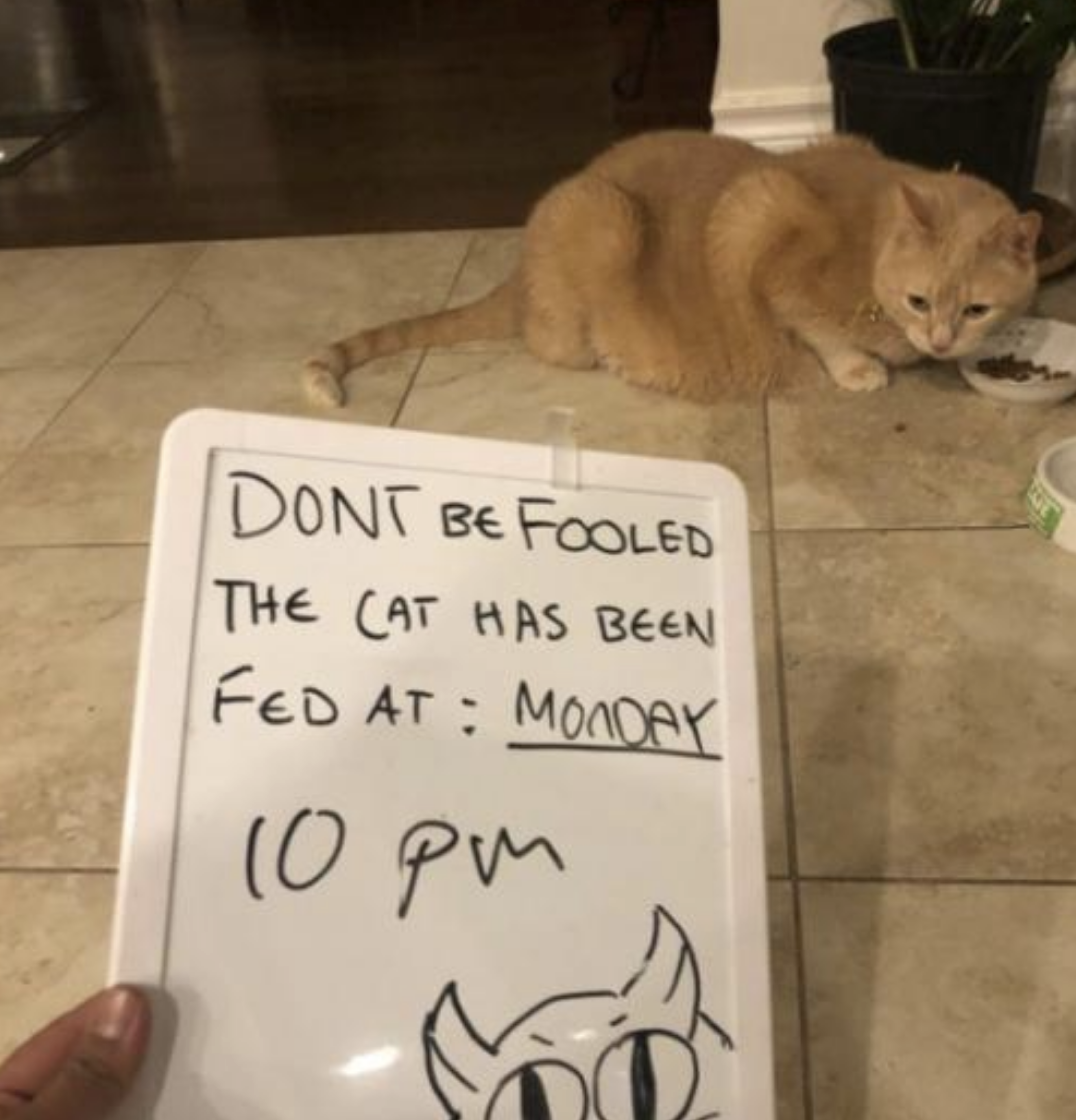 DONT BE FOOLED
THE CAT HAS BEEN
FED AT: MONDAY
10 pm